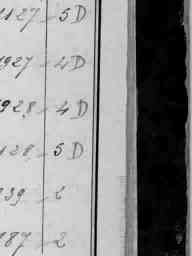 1127 - 5 D
1927 - 4 D
1928 - 4 D
1128 - 5 D
939 - 2
987 - 2